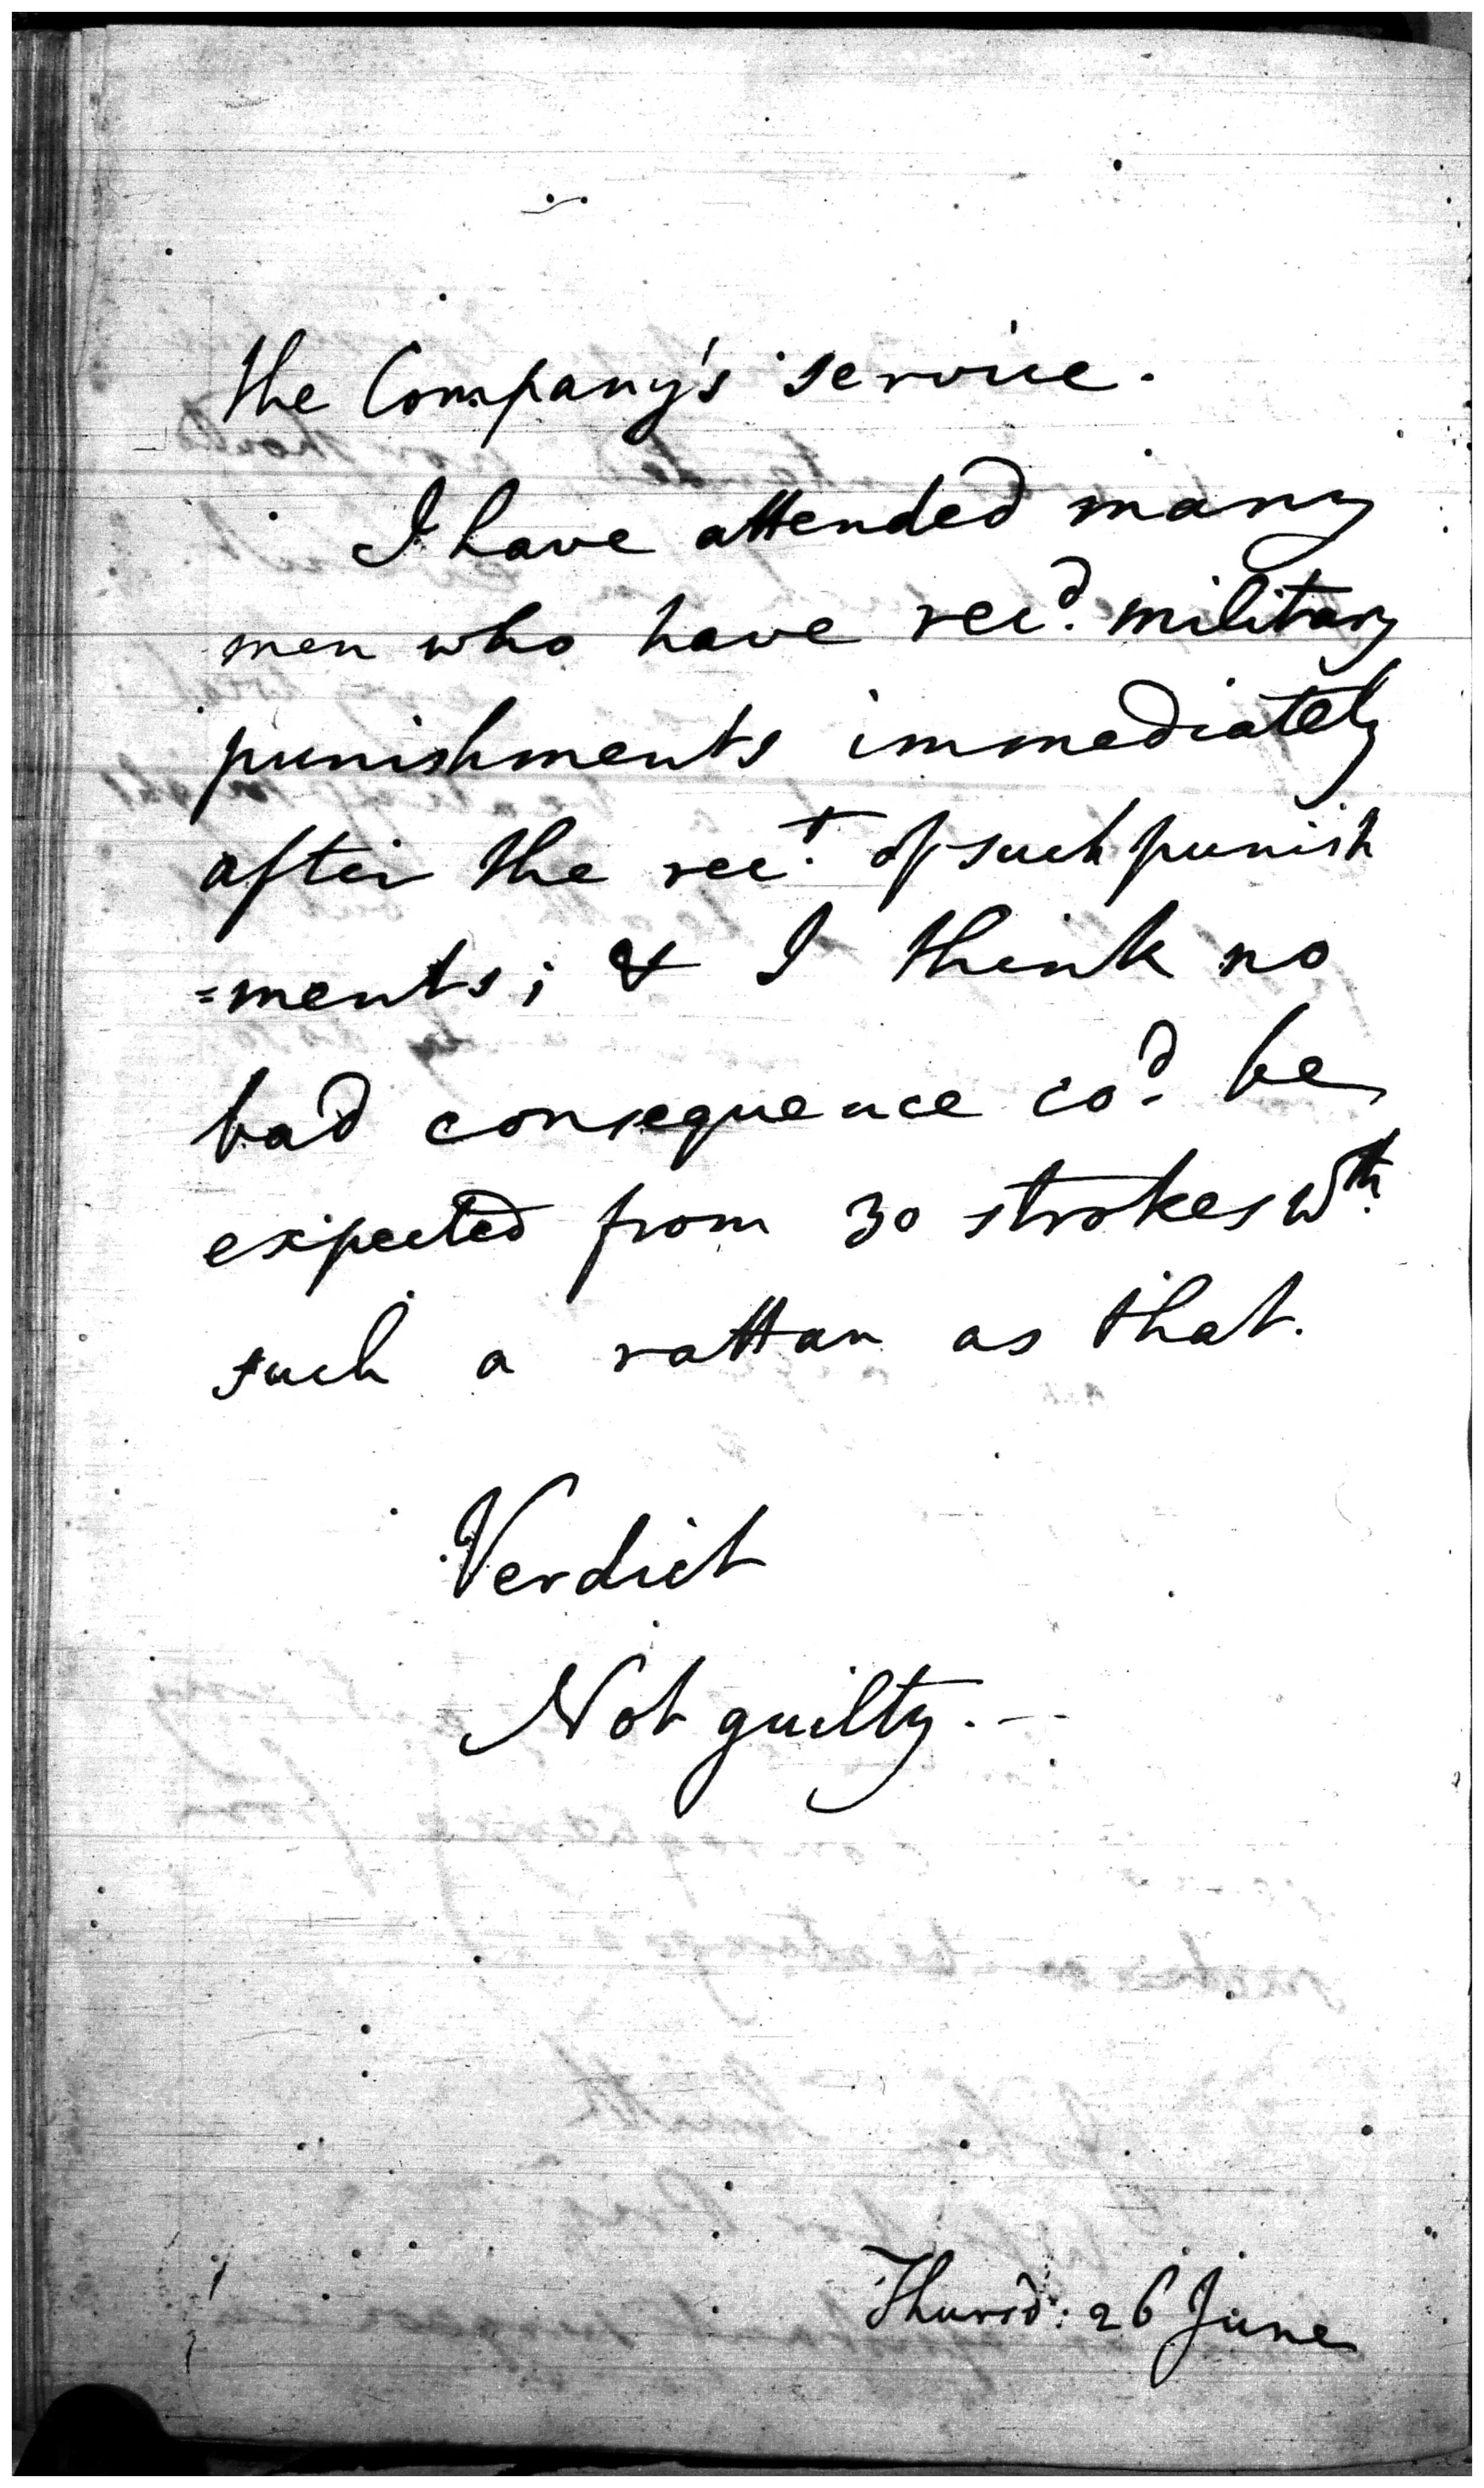 the Company's service.
I have attended many
men who have rec.d military
punishments immediately
after the rec.t of such punish
=ments; & I think no
bad consequence co.d be
expected from 30 strokes w.th
such a rattan as that.
Verdict
Not guilty. —
Thursd: 26 June